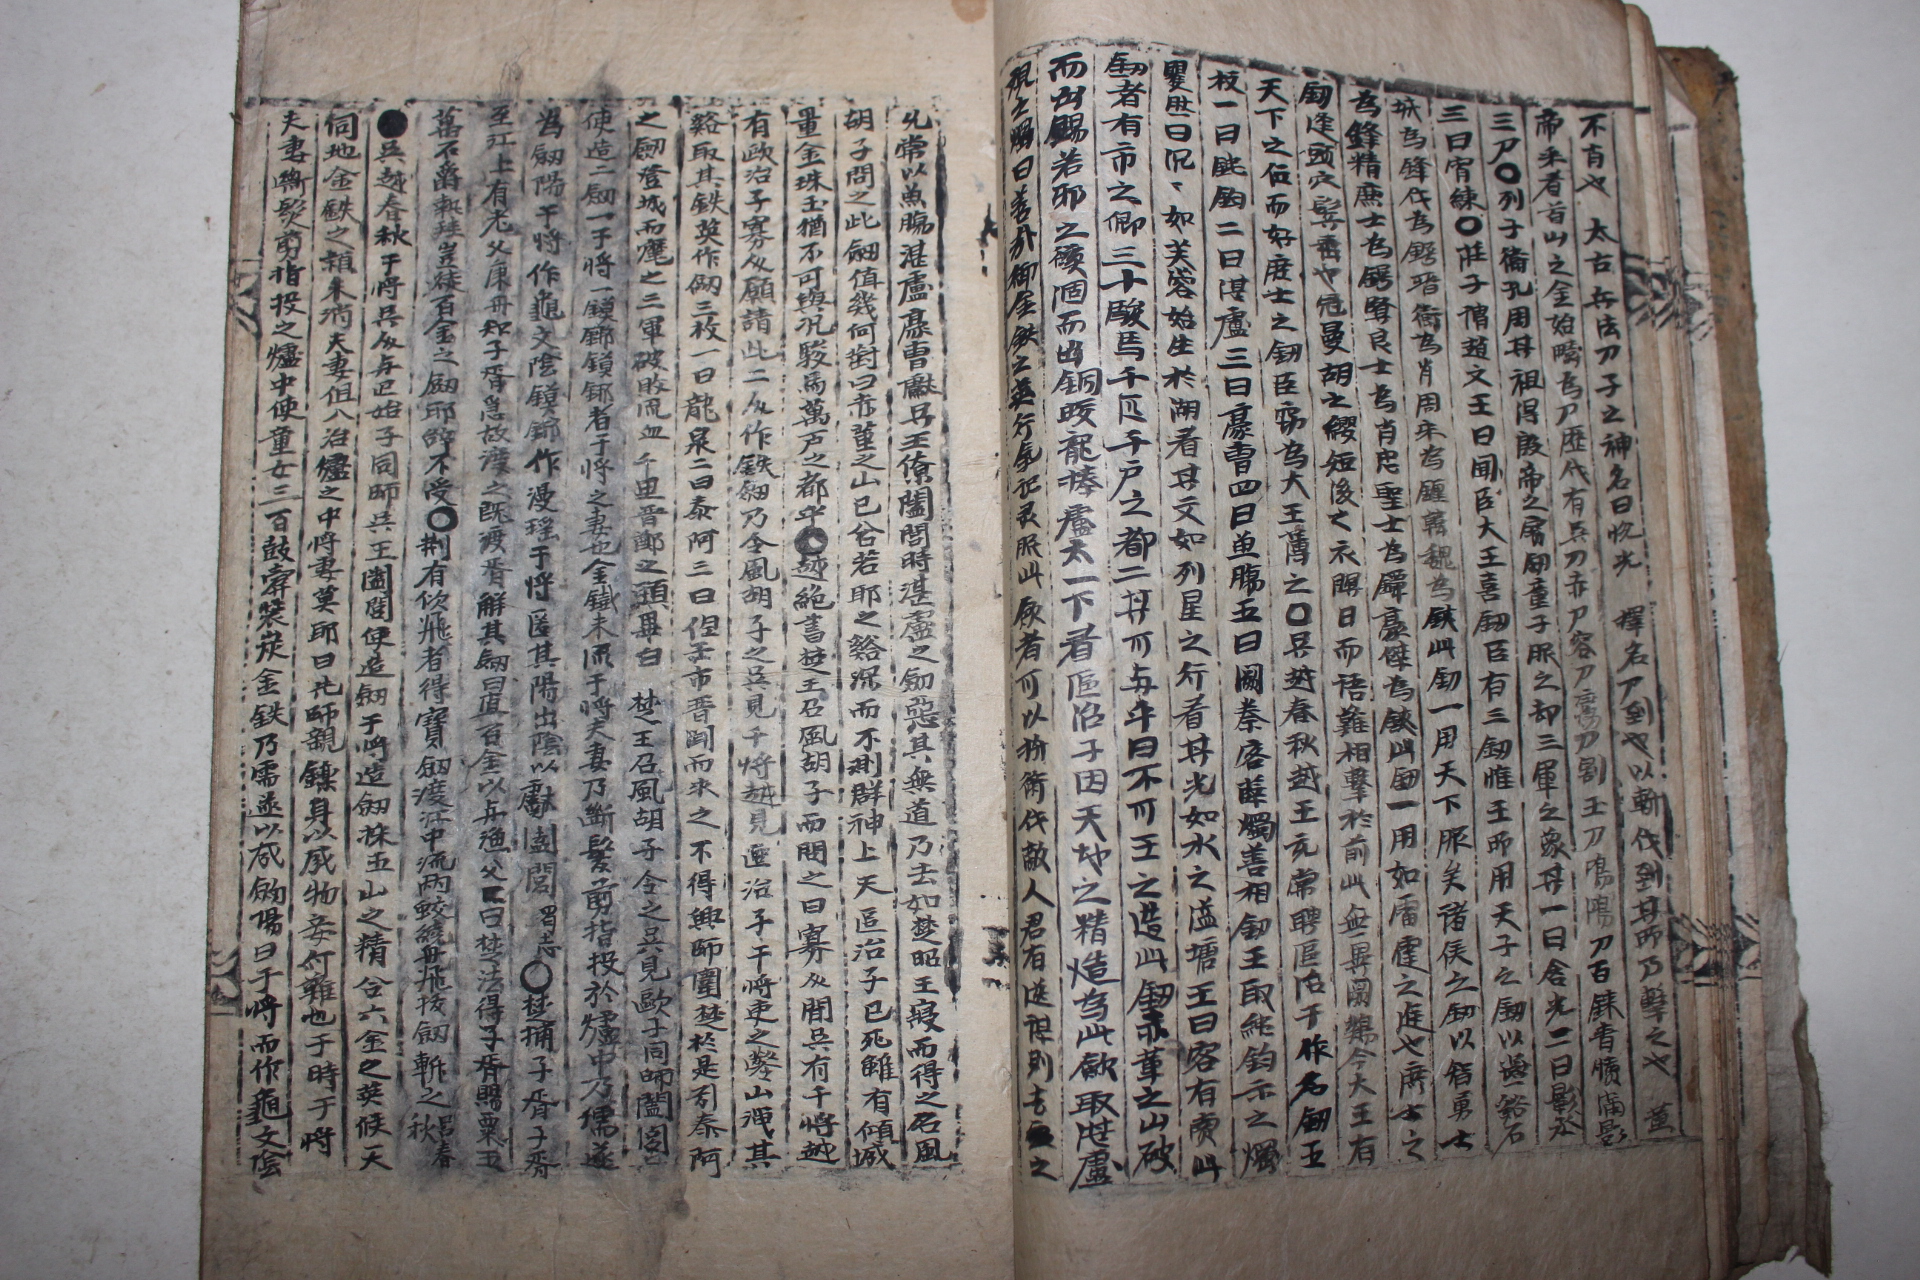 不肖也 太古兵法刀子之神名曰脱光 釋名刀到也以斬伐到其所乃擊之也 黃
帝采首山之金始鑄為刀歷代有吳刀赤刀容刀 刀割玉刀鳴鴻刀百鍊青犢漏影
三刀○列子衛孔周其祖得殷帝之寶劒童子服之却三軍之衆其一曰含光二曰影承
三曰宵練○莊子謂趙文王曰聞臣大王喜劒臣有三劒惟王所用天子之劒以燕谿石
城為鋒代為鍔晋衛為脊周宋為鐔韓魏為鋏此劒一用天下服矣諸侯之劒以智勇士
為鋒精廉士為鍔賢良士為脊忠聖士為鐔豪傑為鋏此劒一用如雷霆之進也庶士之
劒逢頭穴鬂垂也冠曼胡之纓短後之衣瞋目而語難相擊於前此無異鬪鷄今大王有
天下之位而好庶士之劒臣竊為大王薄之○吳越春秋越王元常聘區冶子作名劒五
枚一曰純鈎二曰湛盧三曰豪曹四曰魚膓五曰闕秦客薛燭善相劒王取純鈎示之燭
曰況〻如芙蓉始生於湖看其文如列星之行看其光如水之溢塘王曰客有賣此
劒者有市之鄉三十駿馬千匹千戶之都二其可与乎曰不可王之造此劒赤菫之山破
而出錫若邪之磎涸而出銅蛟龍捧爐太一下看區冶子因天地之精造為此劒取湛盧
視之燭曰善哉御金鉄之英行氣記灵服此劒者可以折衝伐敵人君有逆謀則去之
允常以魚膓湛盧豪曹獻吳王僚闔閭時湛盧之劒惡其無道乃去如楚昭王寢而得之召風
胡子問之此劒值幾何對曰赤菫之山已合若耶之谿深而不測群神上天區治子已死雖有傾城
量金珠玉猶不可與況駿馬萬户之都乎○越絕書楚王召風胡子而問之曰寡人聞吳有千將越
有歐治子寡人願請此二人作鉄劒乃令風胡子之吳見千將越見區治子干將吏之鑿山洩其
谿取其鉄英作劒三枚一曰龍泉二曰泰阿三曰 市晋聞而求之不得興師圍楚於是引泰阿
之劒登城而麾之三軍破敗流血千里晋鄭之頭畢白 楚王召風胡子令之吳見歐子同師闔閭
使造二劒一于將一鏌鎁鏌鎁者于將之妻也金鐵未流于將夫妻乃斷髮剪指投於爐中乃濡遂
為劒陽干將作龜文陰鏌鎁作漫理于將匿其陽出陰以獻闔閭 蜀志○楚捕子胥子胥
至江上有老父康舟知子胥急故渡之既渡胥解其劒曰直百金以与漁父曰楚法得子胥賜粟五
萬石爵執珪豈徒百金之劒耶辞不受○荆有佽飛者得寶劒渡江中流兩蛟繞舟飛拔劒斬之 呂春秋
●吳越春秋干將吳人与歐冶子同師吳王闔閭使造劒于將造劒採五山之精合六金之英候天
伺地金鉄之類未消夫妻俱入冶爐之中將妻莫耶曰先師親鑠身以成物妾何難也于時于將
夫妻斷髮剪指投之爐中使童女三百鼓槖裝炭金鉄乃濡遂以成劒陽曰于將而作龜文陰